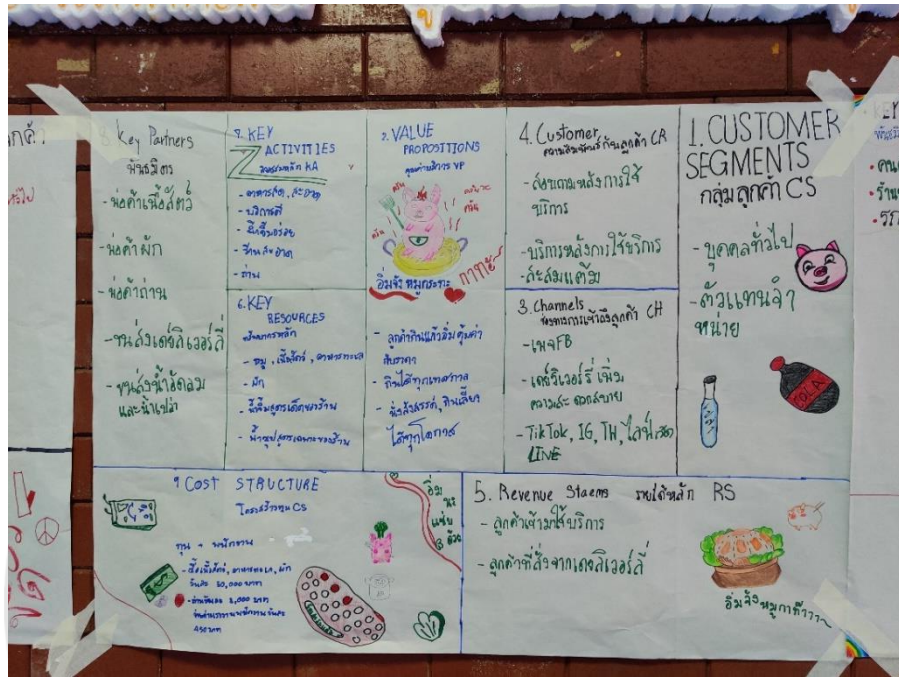 8. Key Partners
พันธมิตร
-พ่อค้าเนื้อสัตว์
-พ่อค้าผัก
-พ่อค้าถ่าน
-ขนส่งเดลิเวอร์ลี่
-ขนส่งน้ำอัดลม
และน้ำเปล่า
7. KEY
ACTIVITIES
กิจกรรมหลัก KA
-อาหารสด, สะอาด
-บริการดี
-น้ำจิ้มอร่อย
-ร้านสะอาด
-ถ่าน
6. KEY
RESOURCES
ทรัพยากรหลัก
- หมู, เนื้อสัตว์, อาหารทะเล
- ผัก
- น้ำจิ้มสูตรเด็ดของร้าน
- น้ำซุปสูตรเฉพาะของร้าน
2. VALUE
PROPOSITIONS
คุณค่าบริการ VP
อิ่มจัง หมูกระทะ
- ลูกค้ากินแล้วอิ่มคุ้มค่า
กับราคา
- กินได้ทุกเทศกาล
- นั่งสังสรรค์, กินเลี้ยง
ได้ทุกโอกาส
4. Customer
ความสัมพันธ์กับลูกค้า CR
-สอบถามหลังการใช้
บริการ
-บริการหลังการใช้บริการ
-สะสมแต้ม
3. Channels
ช่องทางการเข้าถึงลูกค้า CH
-เพจFB
-เดริวิเวอร์รี่ เพิ่ม
ความสะดวกสบาย
-TikTok, IG, TW, ไลน์
LINE
1. CUSTOMER
SEGMENTS
กลุ่มลูกค้า CS
-บุคคลทั่วไป
-ตัวแทนจำ
หน่าย
COLA
9 COST STRUCTURE
โครงสร้างทุน CS
ทุน + พนักงาน
-ซื้อเนื้อสัตว์, อาหารทะเล, ผัก
วันละ 20,000 บาท
พนักงานวันละ
450 บาท
5. Revenue Staems รายได้หลัก RS
- ลูกค้าเข้ามาใช้บริการ
- ลูกค้าที่สั่งจากเดลิเวอร์ลี่
อิ่มจังหมูกาต๊าาา~